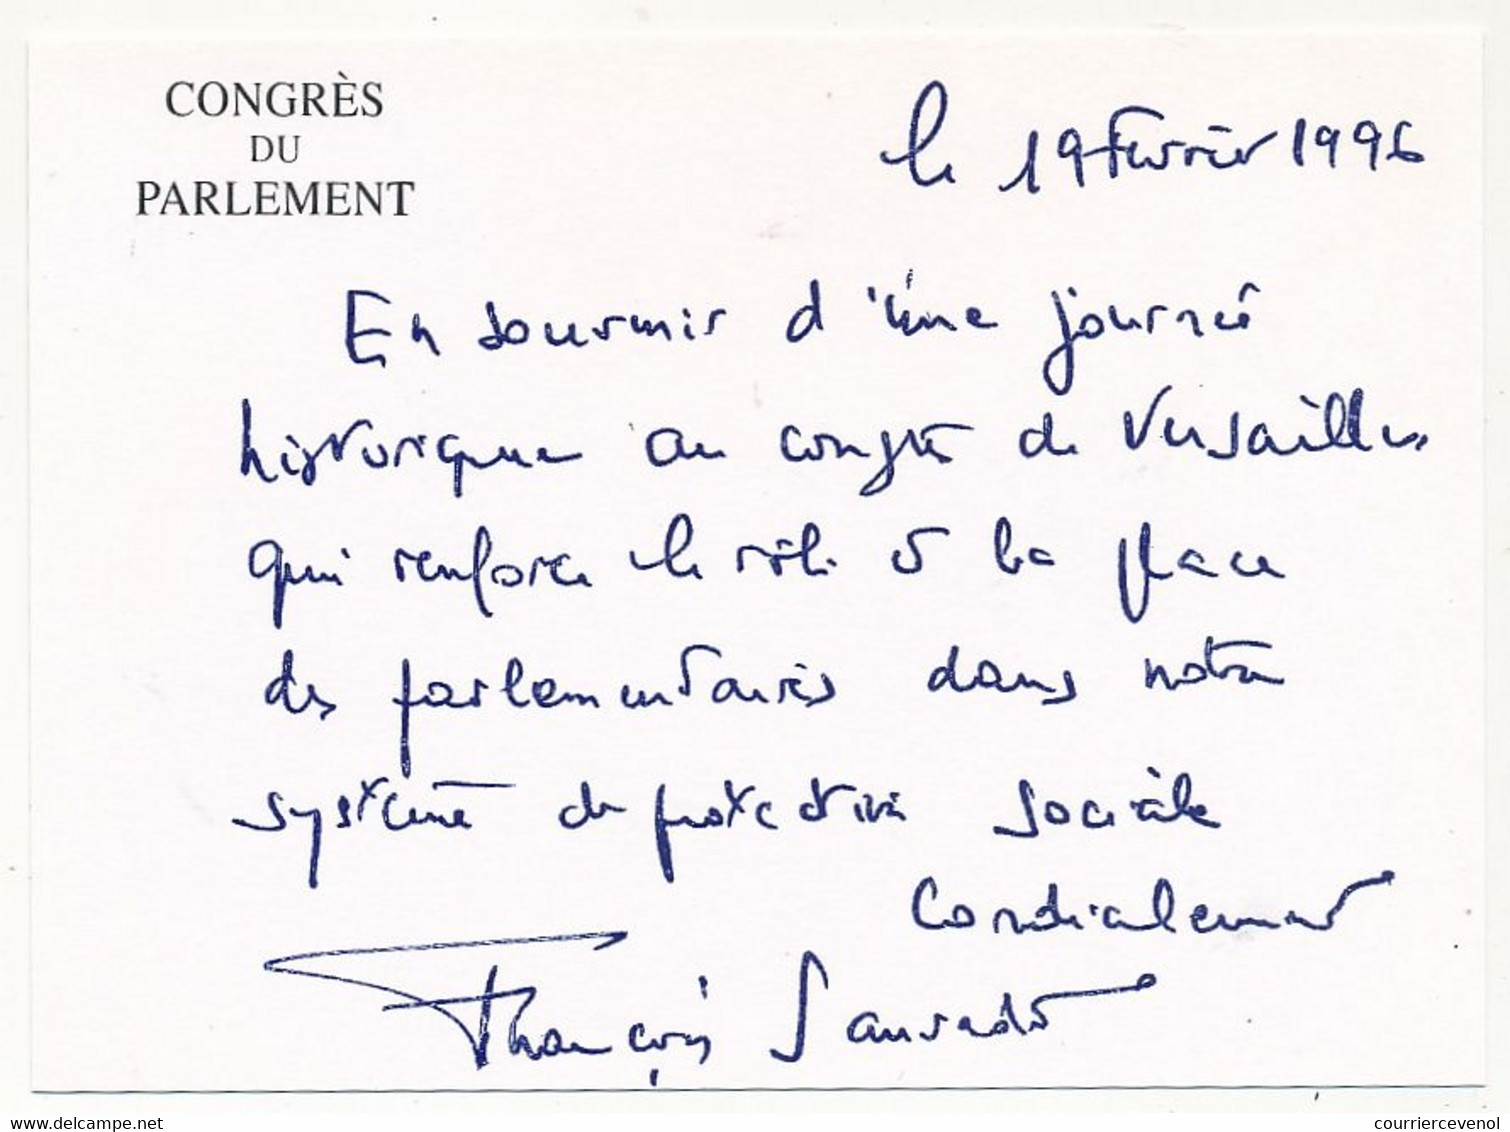 CONGRÈS
DU
PARLEMENT
le 19 Février 1996
En souvenir d'une journée
historique au congrès de Versailles
qui renforce le rôle et la place
des parlementaires dans notre
système de protection sociale
Cordialement
François Sauvadet
www.delcampe.net
courriercevenol